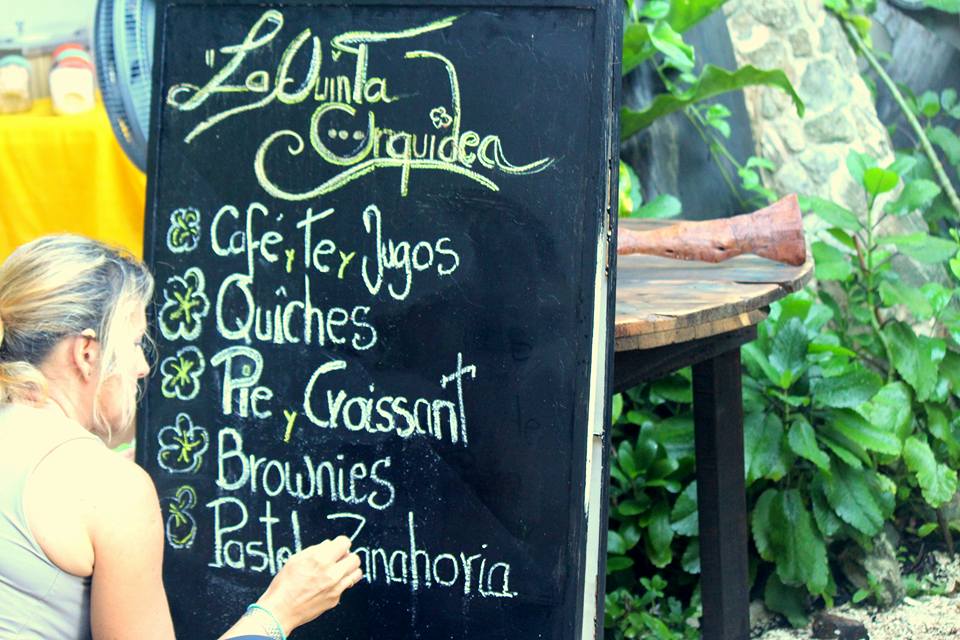 "La Quinta
Orquidea
Café y Te y Jugos
Quiches
Pie y Croissant
Brownies
Pastel Zanahoria.